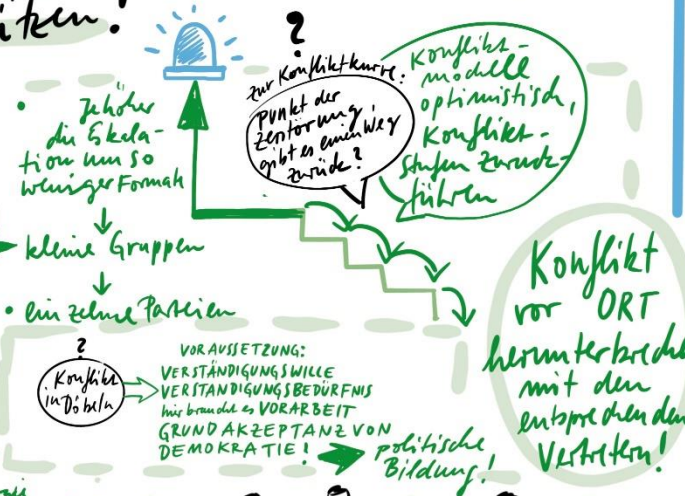 itzen!
?
zur Konfliktkurve:
Punkt der
Zerstörung,
gibt es einen Weg
zurück?
Konflikt-
modelle
optimistisch,
Konflikt-
stufen zurück-
führen
• Je höher
die Eskala-
tion um so
weniger Formate
kleine Gruppen
• einzelne Parteien
?
Konflikt
in Döbeln
VORAUSSETZUNG:
VERSTÄNDIGUNGSWILLE
VERSTANDIGUNGSBEDÜRFNIS
hier braucht es VORARBEIT
GRUNDAKZEPTANZ VON
DEMOKRATIE!
politische
Bildung!
Konflikt
vor ORT
herunterbrechen
mit den
entsprechenden
Vertretern!